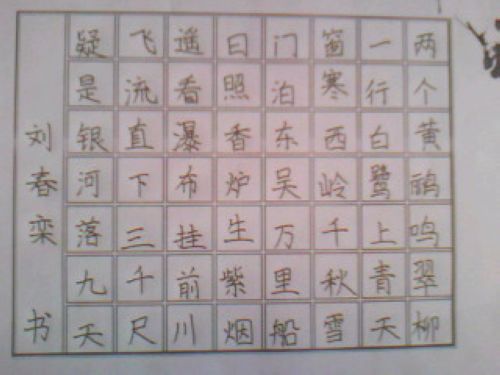 两个黄鹂鸣翠柳
一行白鹭上青天
窗寒西岭千秋雪
门泊东吴万里船
日照香炉生紫烟
遥看瀑布挂前川
飞流直下三千尺
疑是银河落九天
刘春栾 书